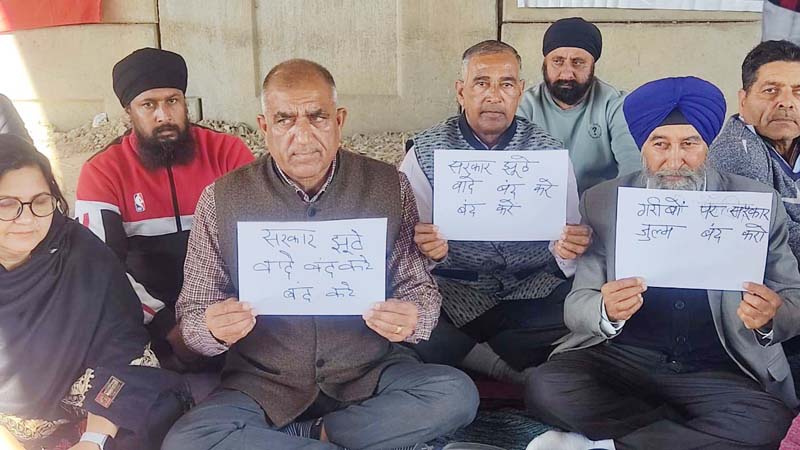 सरकार झूठे
वादे बंद करे
बंद करे
सरकार झूठे
वादे बंद करे
बंद करे
गरीबों पर सरकार
जुल्म बंद करो
NBA